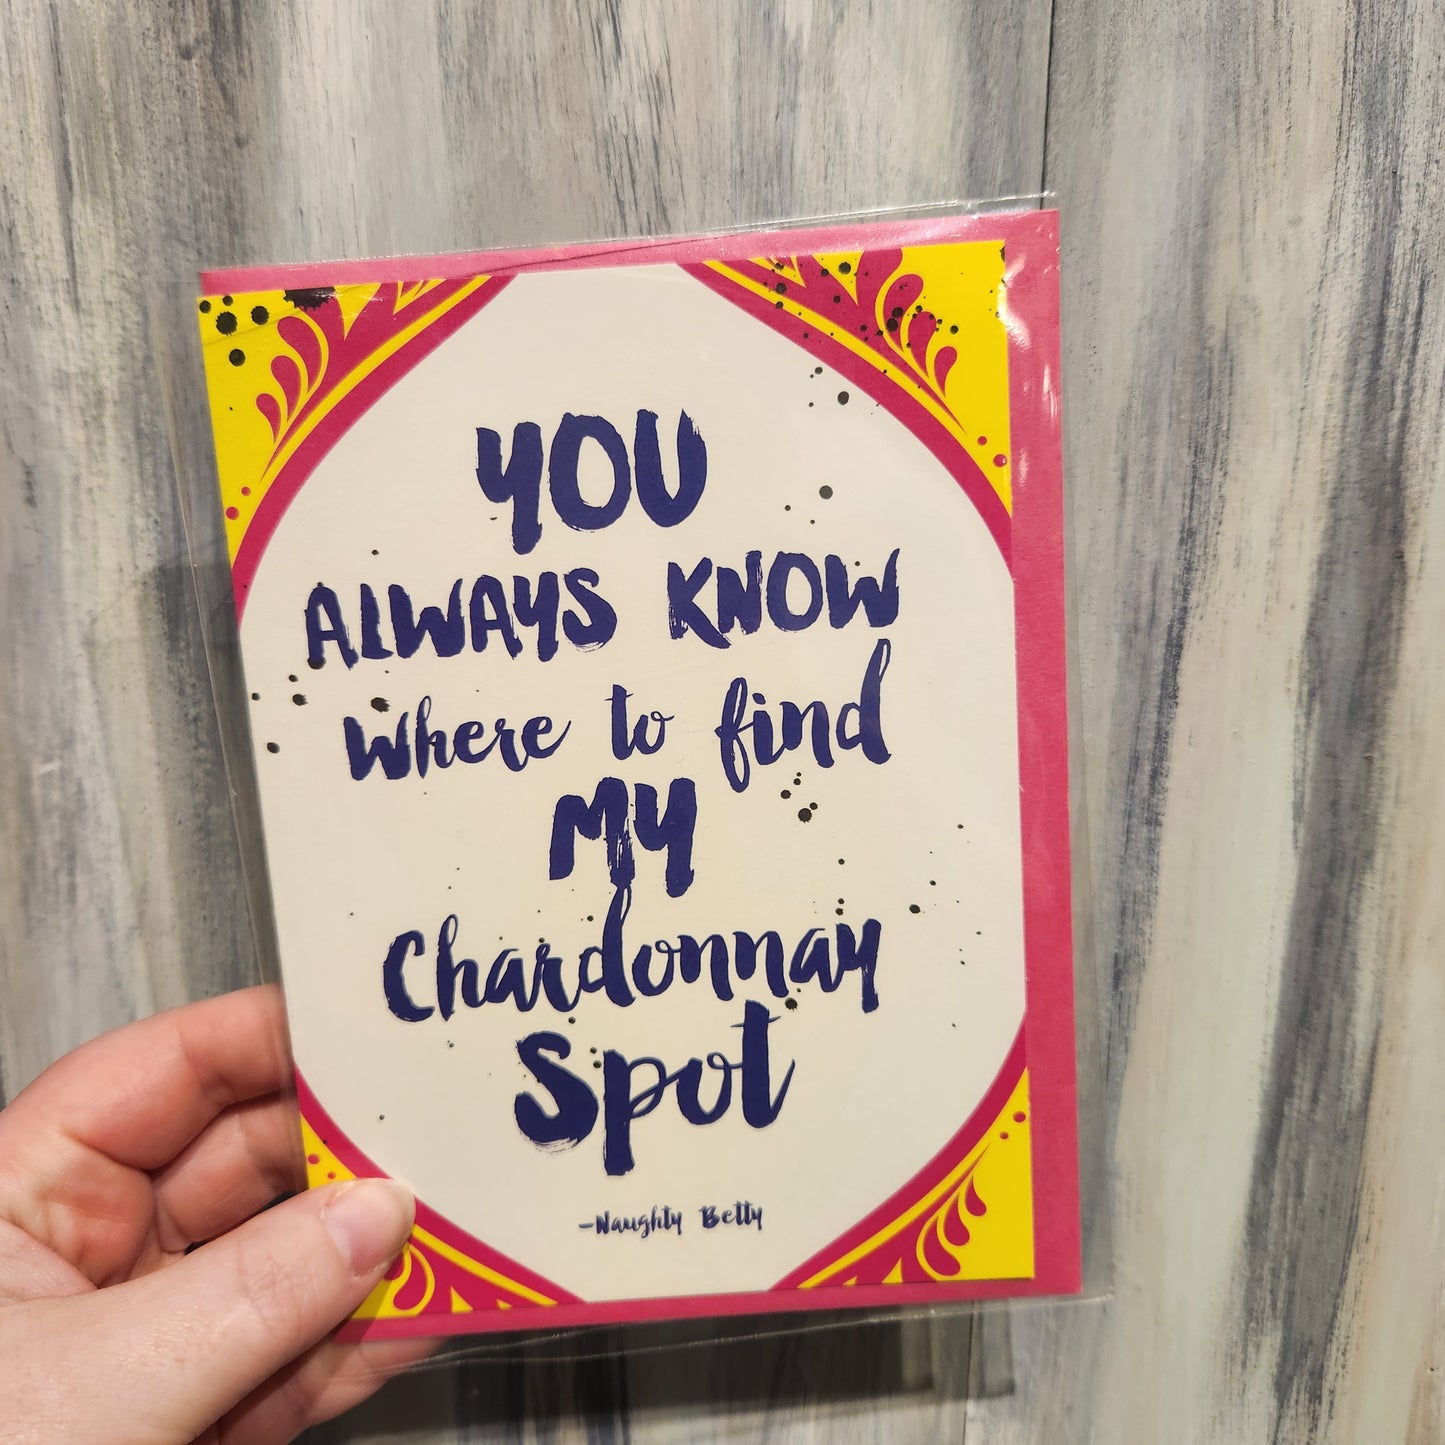 YOU
ALWAYS KNOW
Where to find
MY
Chardonnay
Spot
-Naughty Betty